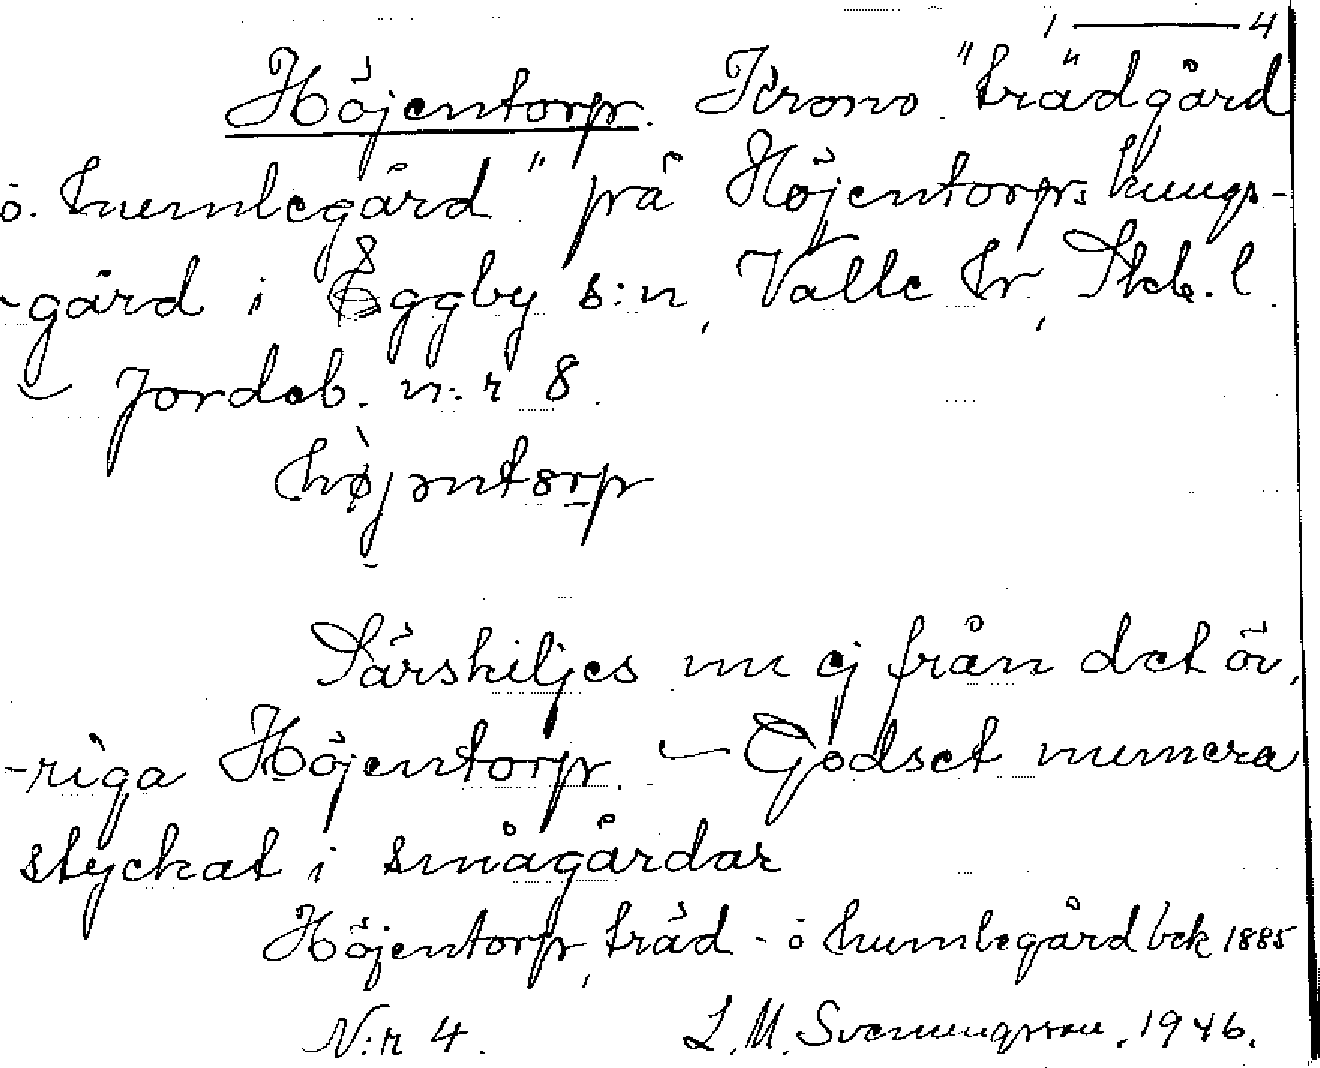 1 — 4
Höjentorp. Krono "trädgård
o. humlegård" på Höjentorps kungs-
-gård i Eggby s:n, Valle hr, Skb. l.
— Jordeb. n:r 8.
Särskiljes nu ej från det öv-
-riga Höjentorp. — Godset numera
styckat i smågårdar
Höjentorp, träd- o humlegård bek 1885
N:r 4. L. M. Svenungsson. 1946.